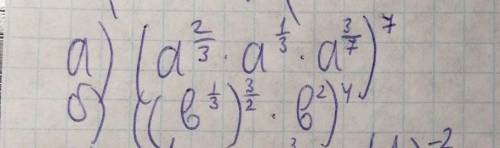 а) (a^{2/3} · a^{1/3} · a^{3/7})^7
б) ((b^{1/3})^{3/2} · b^2)^4